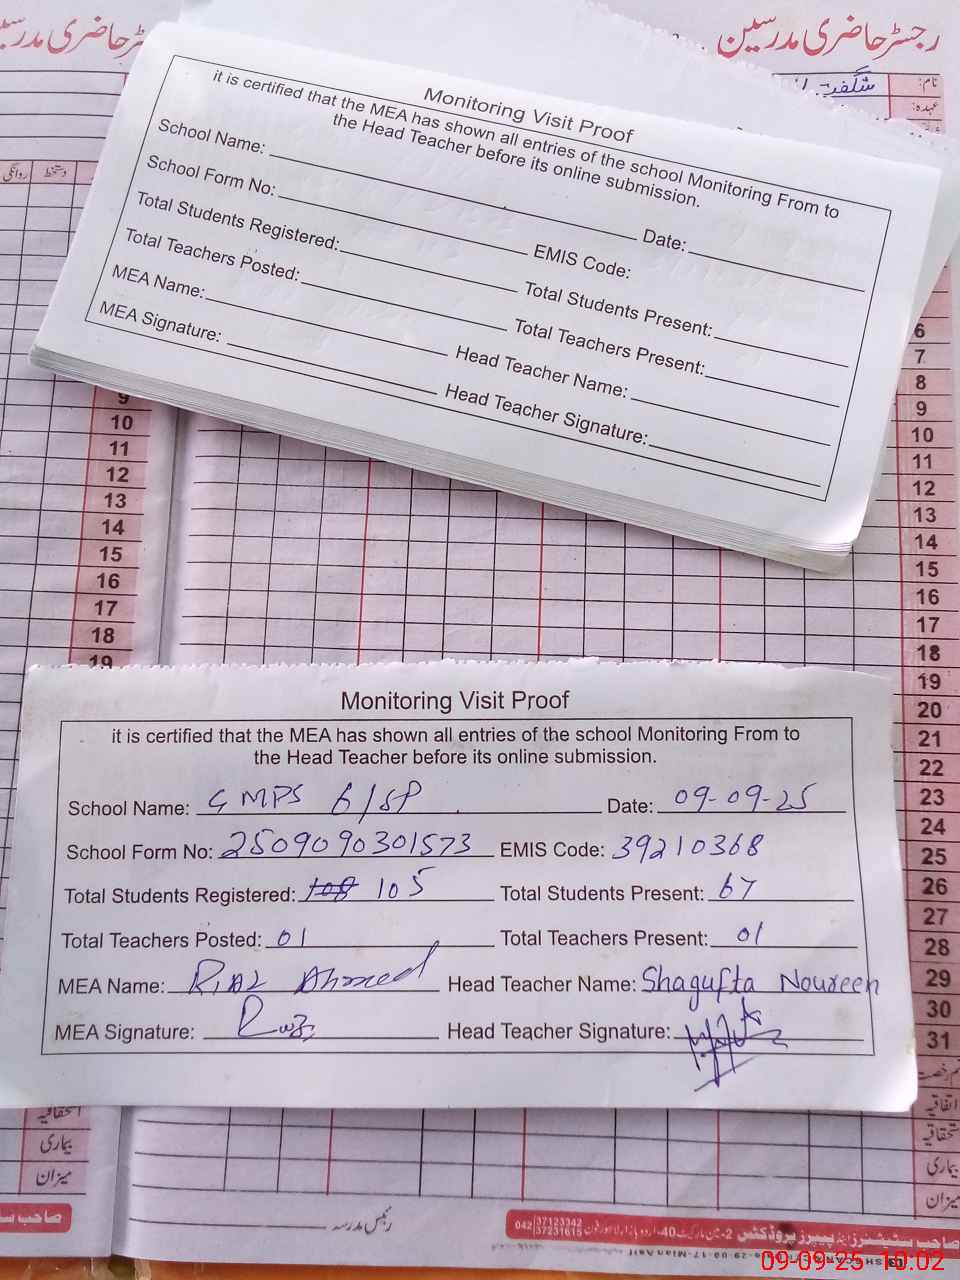 رجسٹر حاضری مدرسین
نام: شگفتہ
عہدہ:
دستخط روانگی
Monitoring Visit Proof
it is certified that the MEA has shown all entries of the school Monitoring From to
the Head Teacher before its online submission.
School Name: Date:
School Form No: EMIS Code:
Total Students Registered: Total Students Present:
Total Teachers Posted: Total Teachers Present:
MEA Name: Head Teacher Name:
MEA Signature: Head Teacher Signature:
6
7
8
9 9
10 10
11 11
12 12
13 13
14 14
15 15
16 16
17 17
18 18
19 19
20
21
22
23
24
25
26
27
28
29
30
31
Monitoring Visit Proof
it is certified that the MEA has shown all entries of the school Monitoring From to
the Head Teacher before its online submission.
School Name: GMPS 6/SP Date: 09-09-25
School Form No: 2509090301573 EMIS Code: 39210368
Total Students Registered: 108 105 Total Students Present: 67
Total Teachers Posted: 01 Total Teachers Present: 01
MEA Name: Riaz Ahmed Head Teacher Name: Shagufta Noureen
MEA Signature: Head Teacher Signature:
اتفاقیہ
استحقاقیہ
بیماری بیماری
میزان میزان
رئیس مدرسہ
042 37123342
37231615
09-09-25 10:02